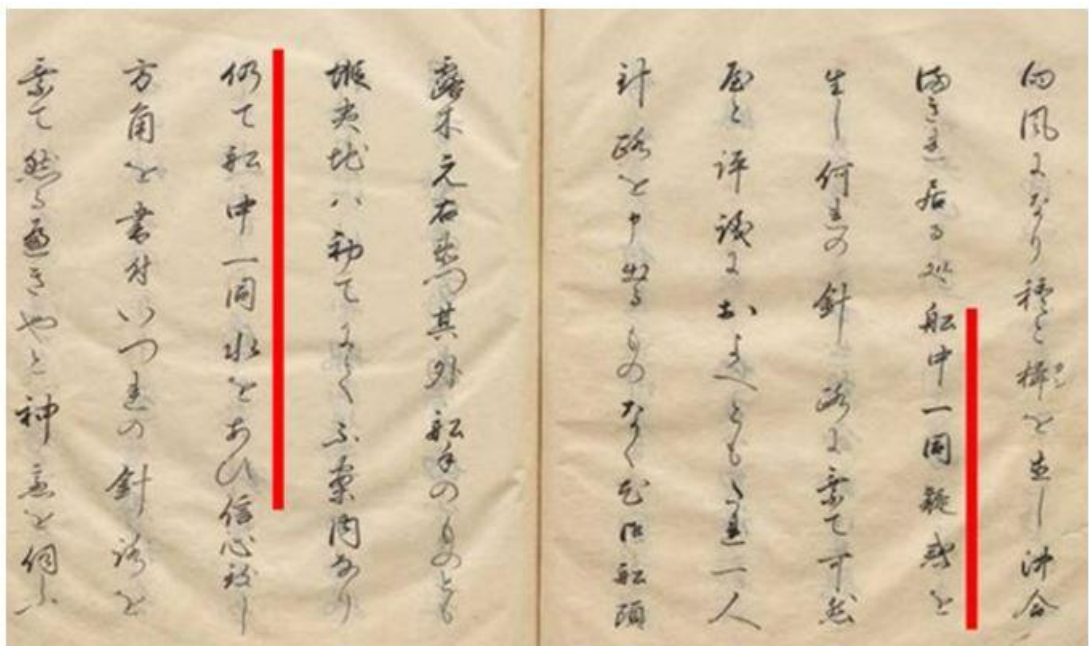 向風になり 穏と楫を直し 沖合
ニ居る処 船中一同疑惑を
生し何れの針路に乗て可然
哉と評議におよへとも 一人
針路を申出るものなく 此節船頭
露木元右衛門 其外船手のものとも
蝦夷地ハ初てにて 不案内なり
仍て船中一同水をあひ信心致し
方角を書付いつれの針路を
乗て然る遍きやと神意を伺ふ